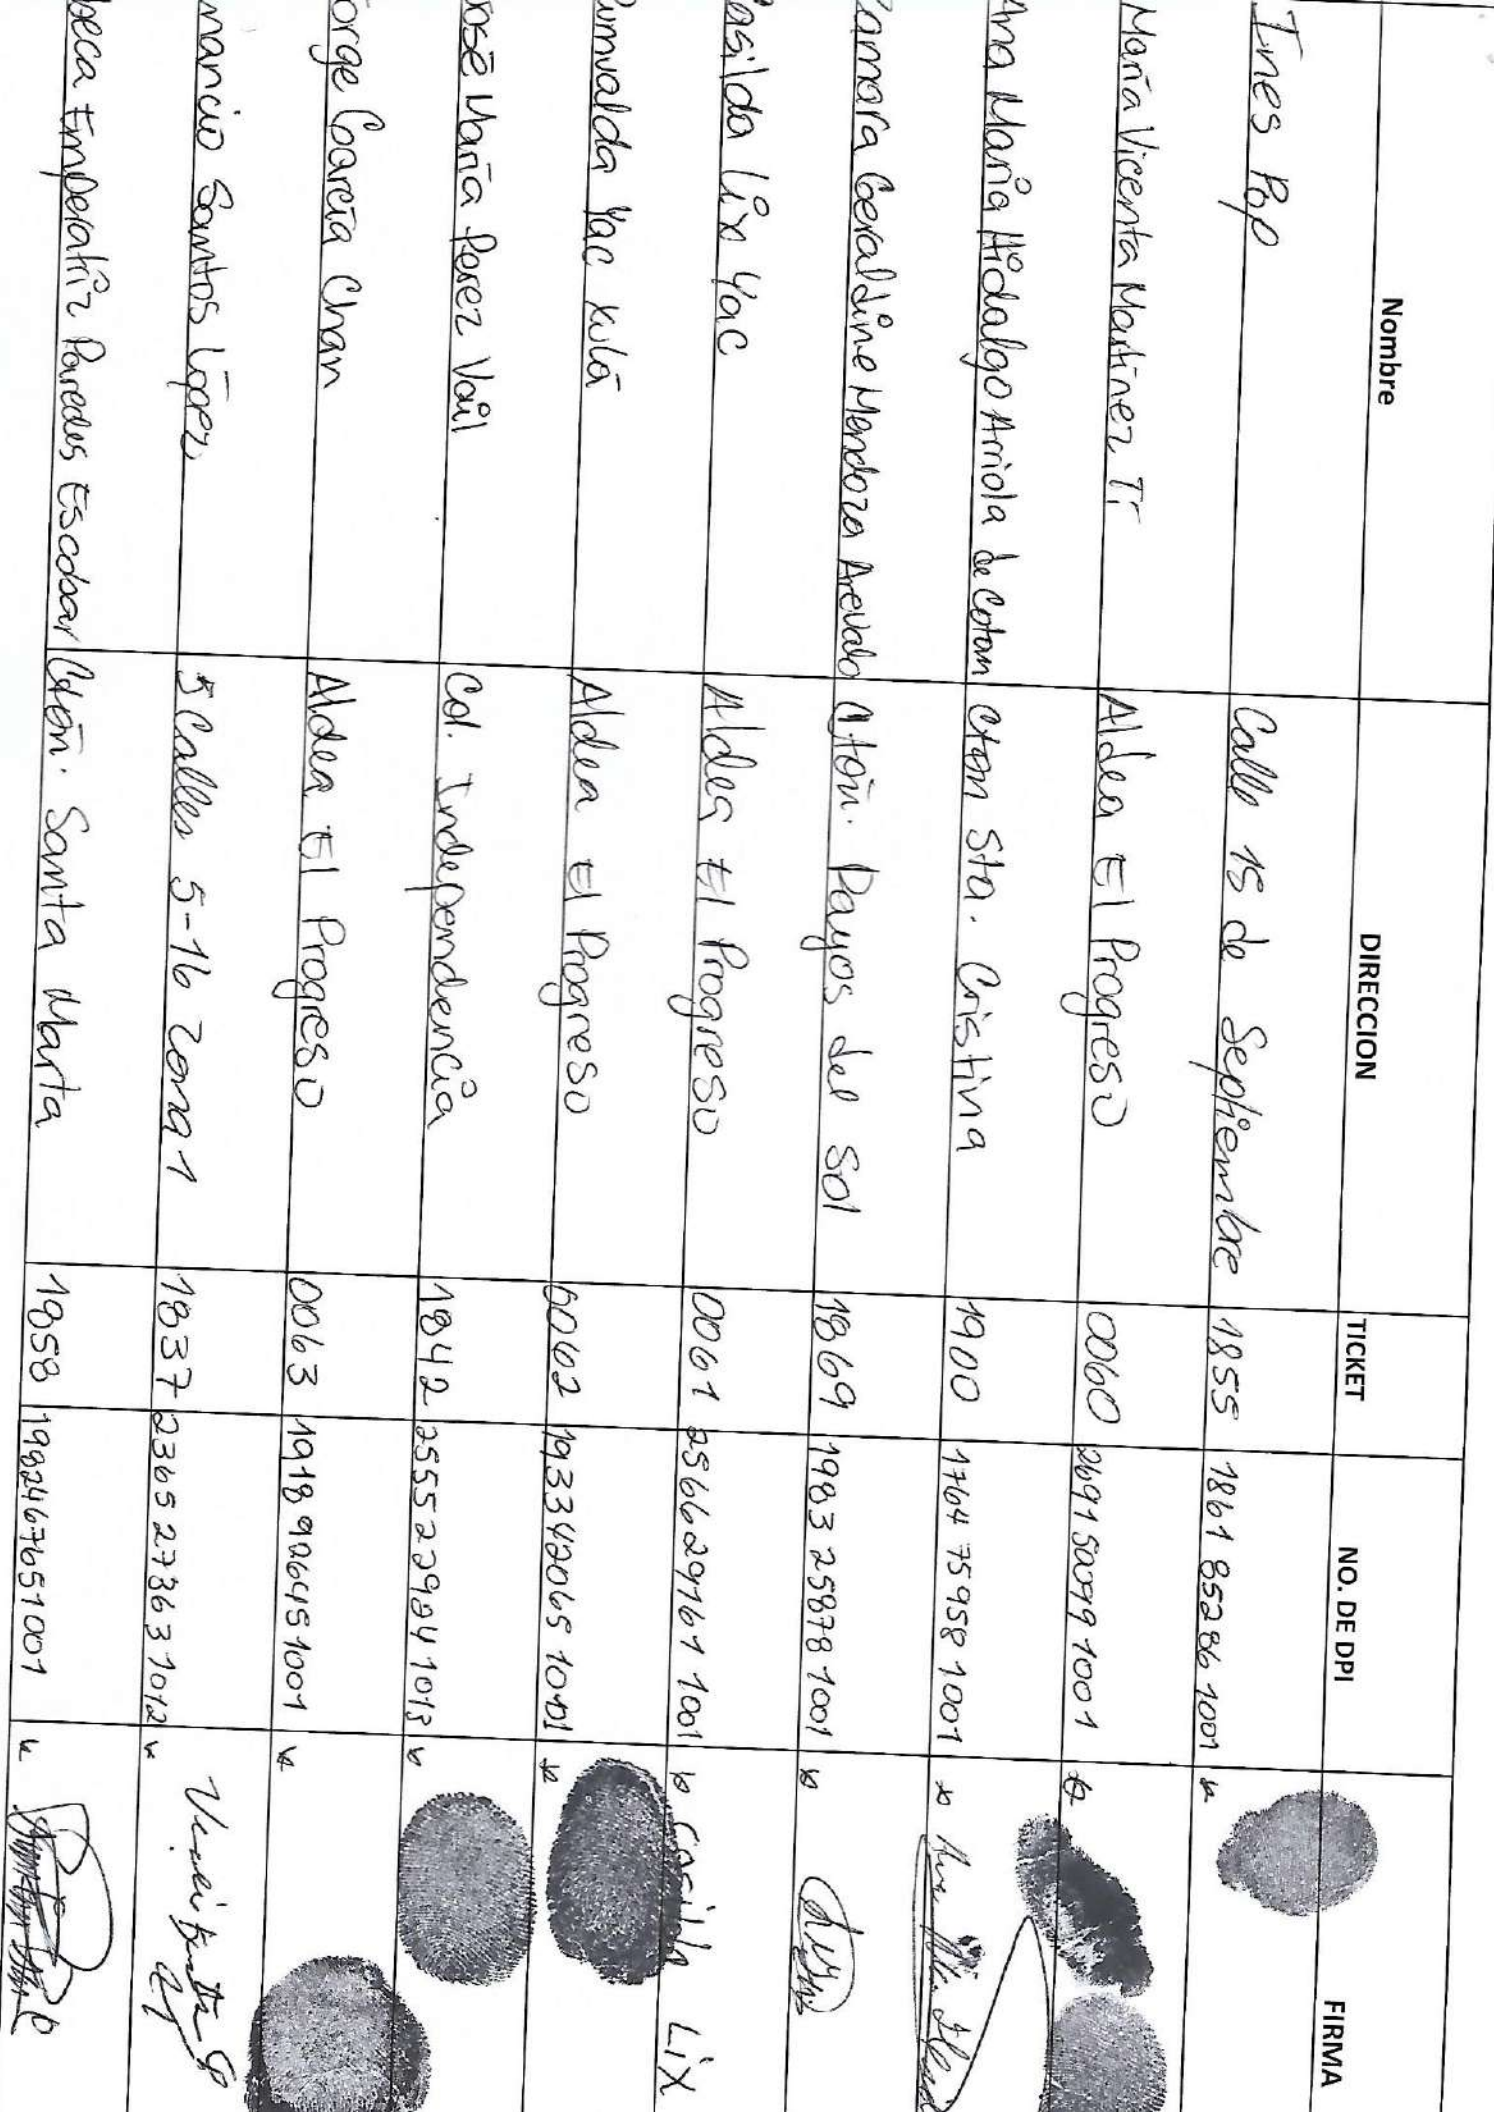 Nombre DIRECCION TICKET NO. DE DPI FIRMA
Ines Pop Calle 15 de Septiembre 1855 1861 85286 1001
María Vicenta Martinez Ti Aldea El Progreso 0060 2691 50099 1001
Ana María Hidalgo Arriola de Cotom Cton Sta. Cristina 1900 1764 75958 1001
Zamara Geraldine Mendoza Arevalo Ctón. Rayos del Sol 1869 1983 25878 1001
asilda Lix Yac Aldea El Progreso 0061 2566 29161 1001 Casilda Lix
umvalda Yac Xulá Aldea El Progreso 0062 1933 42065 1001
José María Perez Vail Col. Independencia 1842 2555 22924 1013
orge García Chan Aldea El Progreso 0063 1918 92645 1001
mancio Santos López 5 Calles 5-16 Zona 1 1837 2365 27363 1012
beca Emperatriz Paredes Escobar Ctón. Santa Marta 1858 1982467651001